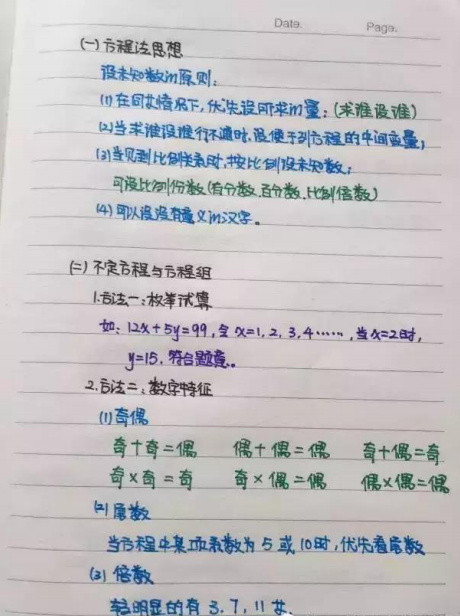 Date.
Page.
(一)方程法思想
设未知数的原则:
(1)在同女情况下,优先设所求的量;(求谁设谁)
(2)当求谁设谁行不通时,设便于列方程的中间变量;
(3)当见到比例关系时,按比例设未知数;
可设比例份数(有分数、百分数、比例倍数)
(4)可以设没有意义的汉字。
(二)不定方程与方程组
1.方法一:枚举试算
如:12x+5y=99,令x=1,2,3,4……,当x=2时,
y=15,符合题意。
2.方法二:数字特征
(1)奇偶
奇+奇=偶 偶+偶=偶 奇+偶=奇
奇×奇=奇 奇×偶=偶 偶×偶=偶
(2)尾数
当方程中某项系数为5或10时,优先看尾数
(3)倍数
较明显的有3,7,11